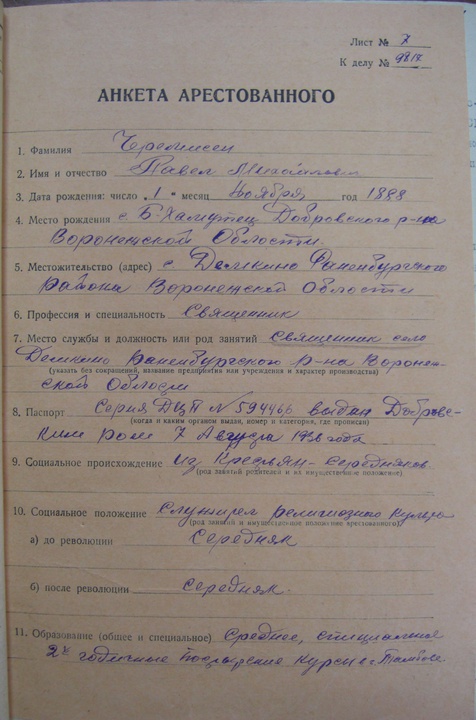 Лист № 7
К делу № 9817
АНКЕТА АРЕСТОВАННОГО
1. Фамилия
2. Имя и отчество Павел Михайлович
3. Дата рождения: число „1" месяц Ноября год 1888
4. Место рождения с Б-Хомутец Добровского р-на
Воронежской Области
5. Местожительство (адрес) с. Демкино Раненбургского
района Воронежской Области
6. Профессия и специальность Священник
7. Место службы и должность или род занятий Священник села
Демкино Раненбургского р-на Воронеж-
(указать без сокращений, название предприятия или учреждения и характер производства)
ской Области
8. Паспорт Серия № 594466 выдан Добровс-
(когда и каким органом выдан, номер и категория, где прописан)
ким ром 7 Августа 1936 года
9. Социальное происхождение из Крестьян-Середняков.
(род занятий родителей и их имущественное положение)
10. Социальное положение Служител религиозного Культа
(род занятий и имущественное положение арестованного)
а) до революции Середняк
б) после революции Середняк.
11. Образование (общее и специальное) Среднее, специальное
2х годичные курсы г Тамбове.